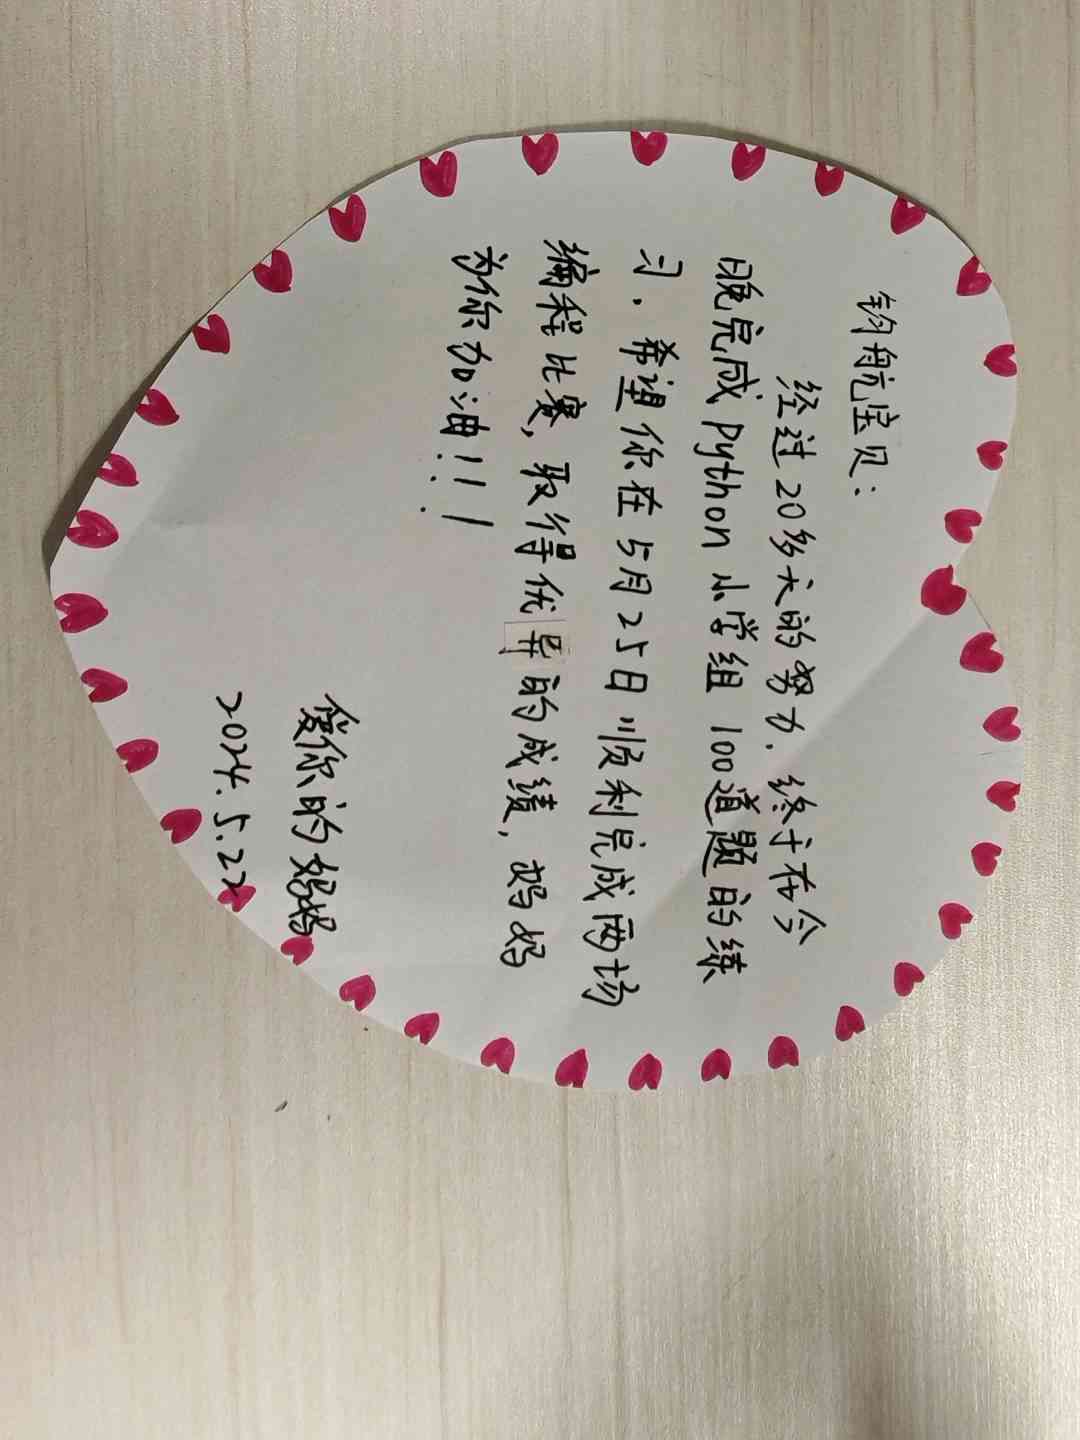 钧航宝贝：
经过20多天的努力，终于在今
晚完成python小学组100道题的练
习，希望你在5月25日顺利完成两场
编程比赛，取得优异的成绩，妈妈
为你加油！！！
爱你的妈妈
2024.5.22